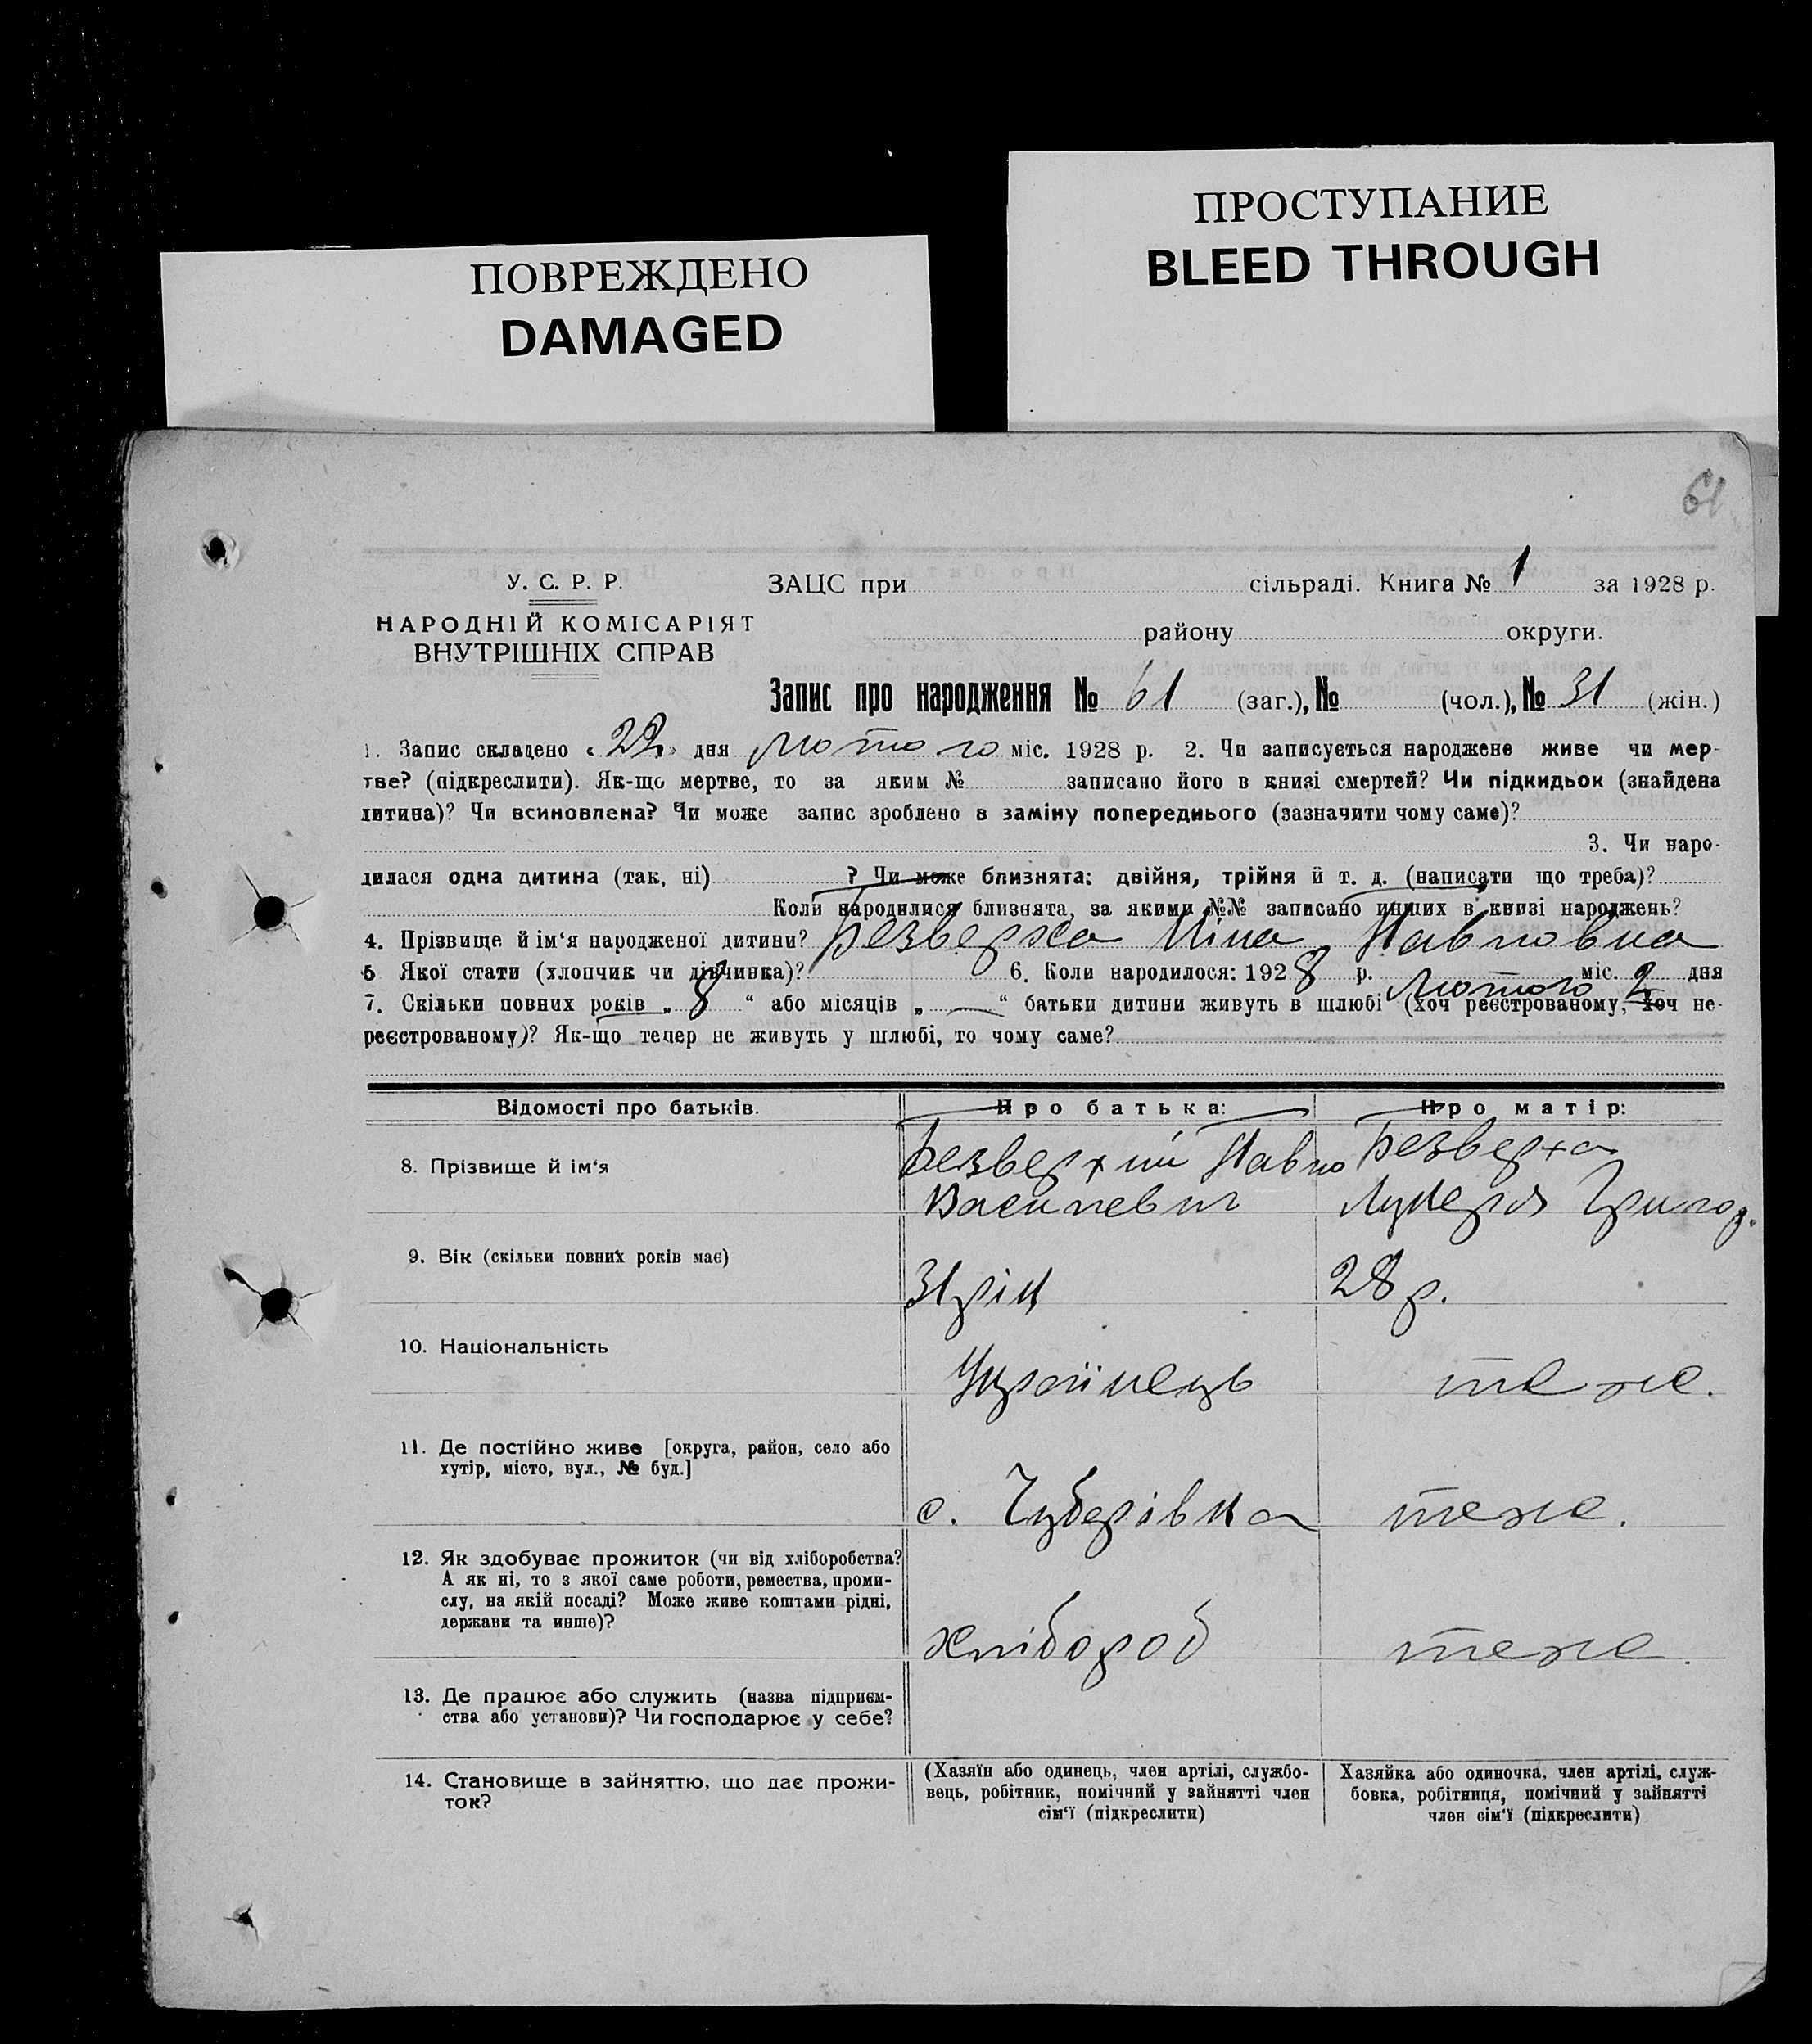 ПРОСТУПАНИЕ
BLEED THROUGH
ПОВРЕЖДЕНО
DAMAGED
61
У. С. Р. Р. ЗАЦС при сільраді. Книга № 1 за 1928 р.
НАРОДНІЙ КОМІСАРІЯТ
району округи.
ВНУТРІШНІХ СПРАВ
Запис про народження № 61 (заг.), № (чол.), № 31 (жін.)
1. Запис складено « 22 » дня лютого міс. 1928 р. 2. Чи записується народжене живе чи мер-
тве? (підкреслити). Як-що мертве, то за яким № записано його в книзі смертей? Чи підкидьок (знайдена
дитина)? Чи всиновлена? Чи може запис зроблено в заміну попереднього (зазначити чому саме)?
3. Чи наро-
дилася одна дитина (так, ні) ? Чи може близнята: двійня, трійня й т. д. (написати що треба)?
Коли народилися близнята, за якими №№ записано инших в книзі народжень?
4. Прізвище й ім‘я народженої дитини? Безверха Ніна Павловна
5 Якої стати (хлопчик чи дівчинка)? 6. Коли народилося: 1928 р. Лютого міс. 2 дня
7. Скільки повних років „ 8 “ або місяців „ — “ батьки дитини живуть в шлюбі (хоч реєстрованому, хоч не-
реєстрованому)? Як-що тепер не живуть у шлюбі, то чому саме?
Відомості про батьків. Про батька: Про матір:
8. Прізвище й ім‘я Безверхий Павло Безверха
Василевич Лукеря Григор.
9. Вік (скільки повних років має) 31 рік 28 р.
10. Національність Українець теж.
11. Де постійно живе [округа, район, село або
хутір, місто, вул., № буд.]
с. Губарівка теж.
12. Як здобуває прожиток (чи від хліборобства?
А як ні, то з якої саме роботи, ремества, проми-
слу, на якій посаді? Може живе коштами рідні,
держави та инше)?
хлібороб теж.
13. Де працює або служить (назва підприєм-
ства або установи)? Чи господарює у себе?
14. Становище в зайняттю, що дає прожи-
ток?
(Хазяїн або одинець, член артілі, службо-
вець, робітник, помічний у зайнятті член
сім‘ї (підкреслити)
Хазяйка або одиночка, член артілі, служ-
бовка, робітниця, помічний у зайнятті
член сім‘ї (підкреслити)